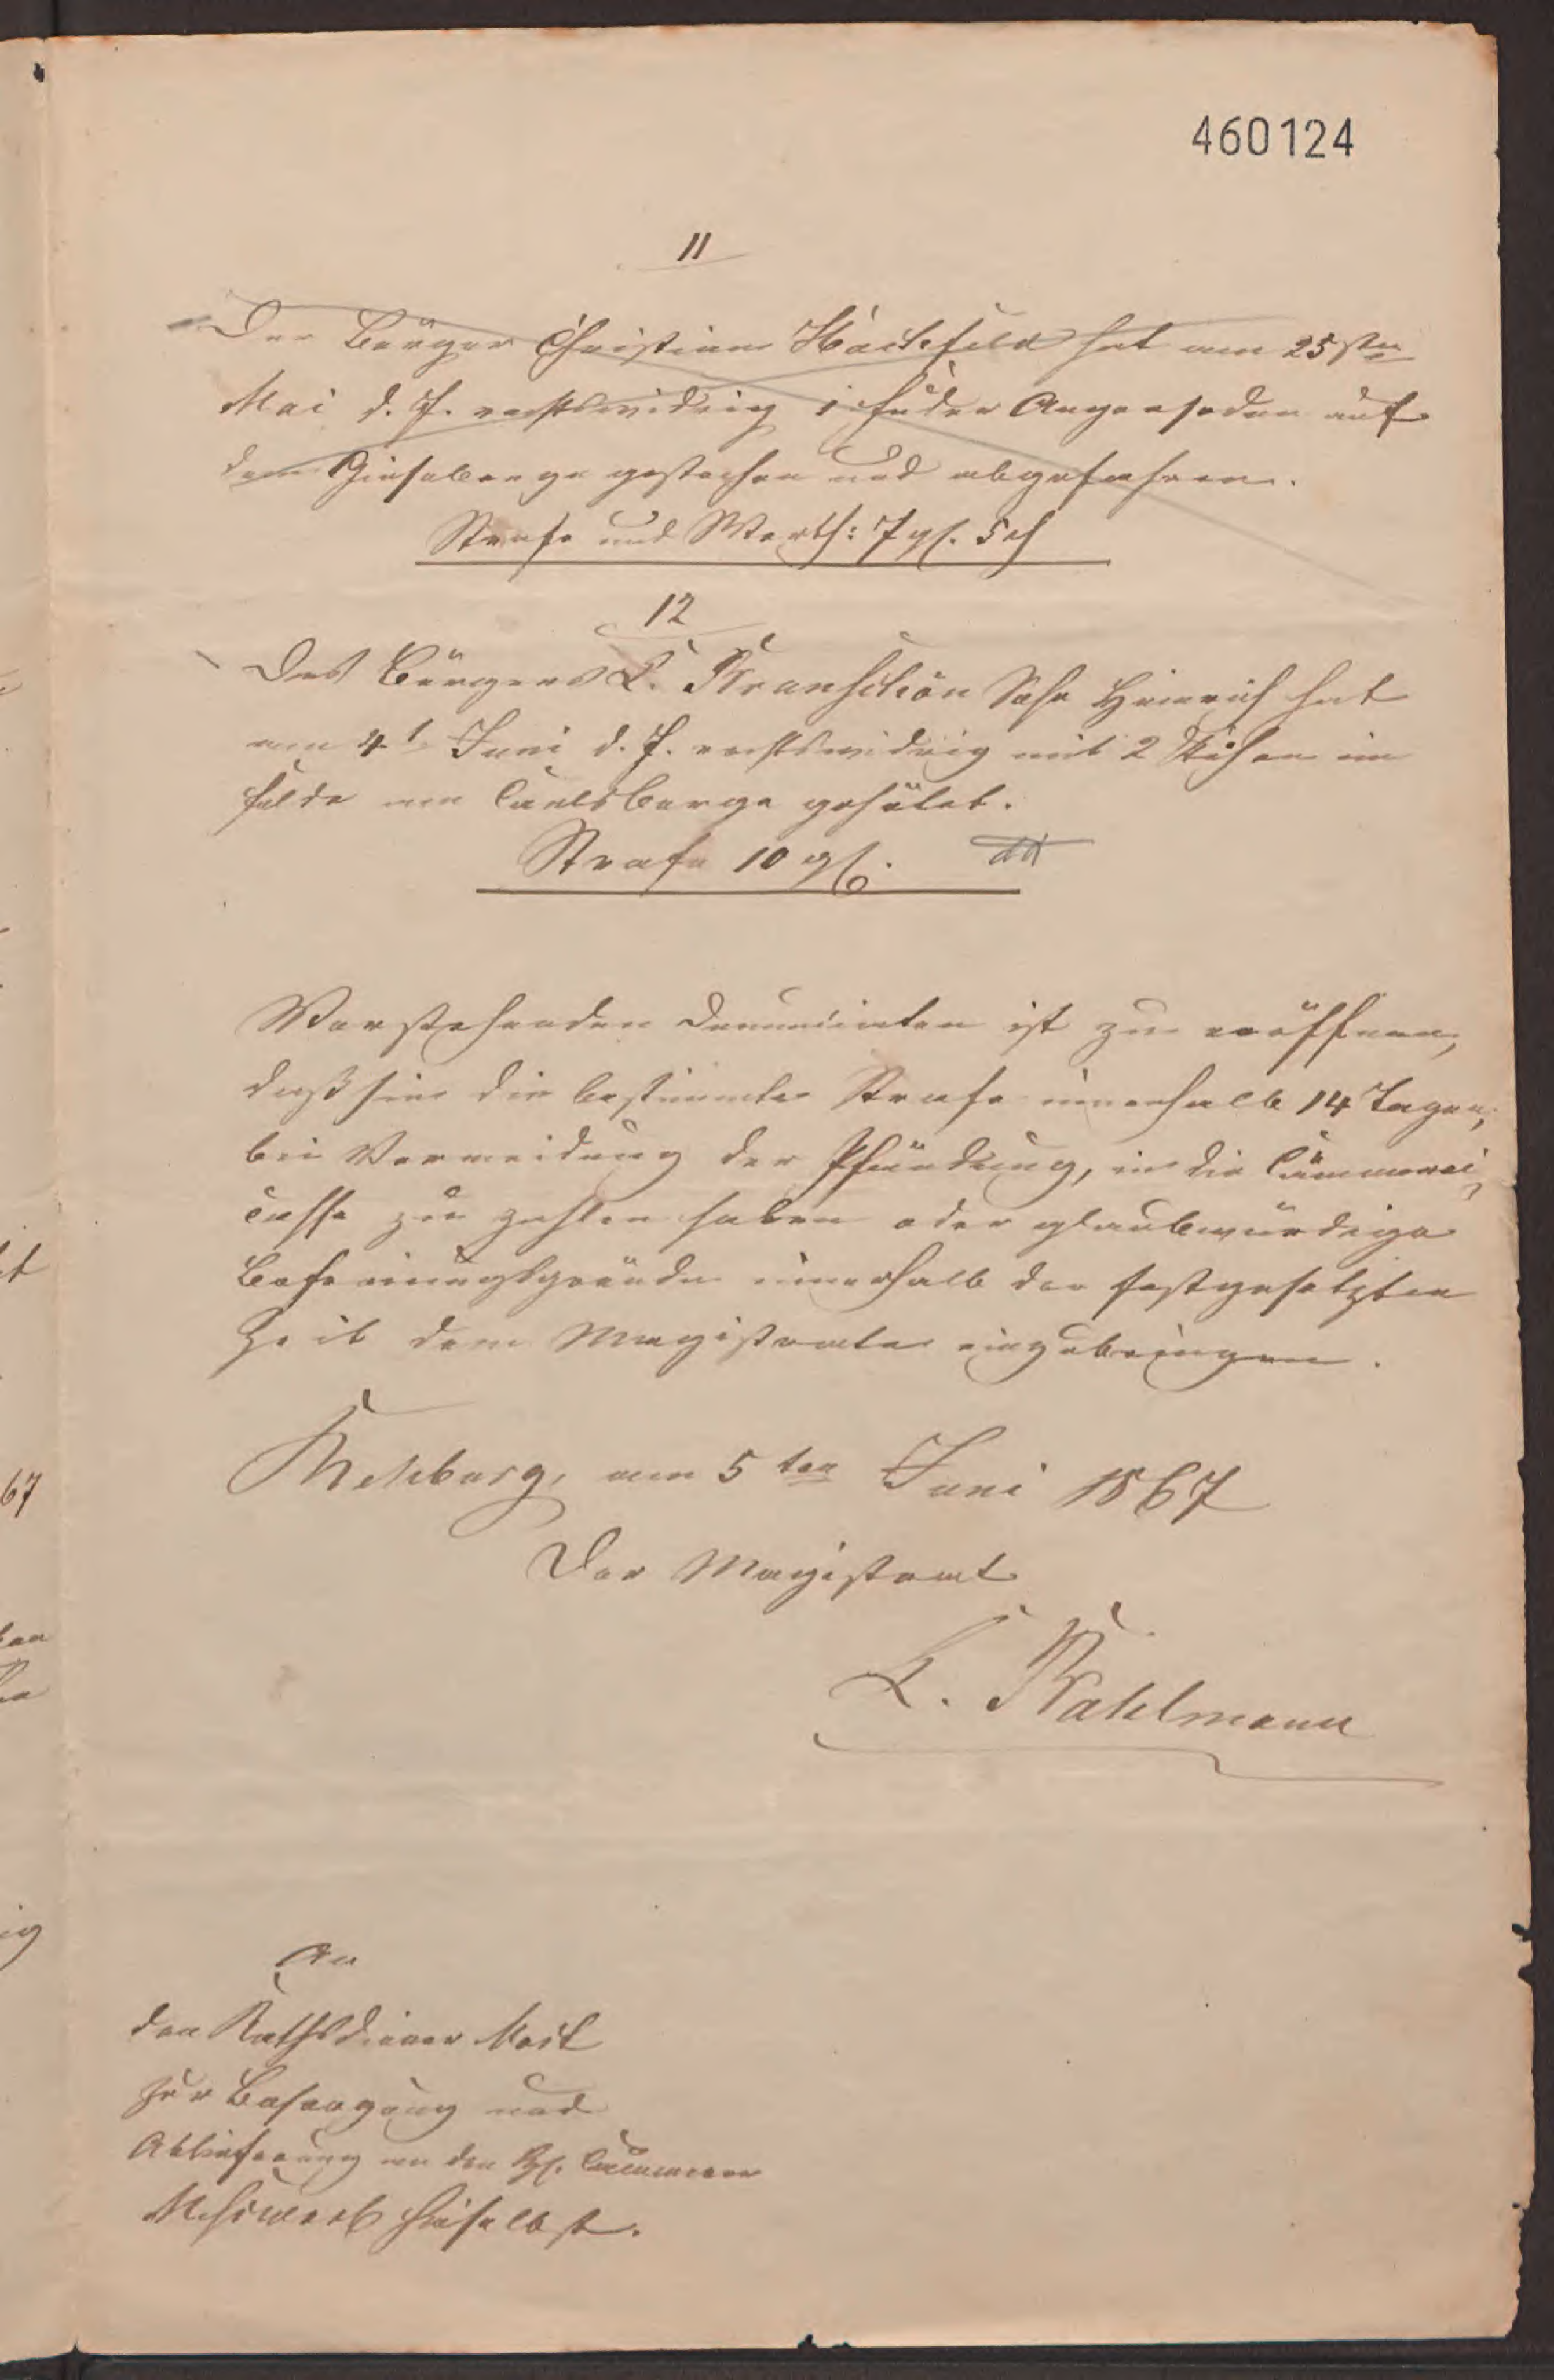 460124
11
Der Bürger Christian Hachfeld hat am 25sten
Mai d. J. rechtswidrig 1 Fuder Angersoden auf
dem Giseberge gestochen und abgefahren.
Strafe und Werth: 7 gf. 5 d
12
Des Bürgers L. Kranschön Sohn Heinrich hat
am 4t Juni d. J. rechtswidrig mit 2 Kühen im
Felde am Caelsberge gehütet.
Strafe 10 gf.
Vorstehenden Denuncirten ist zu eröffnen,
daß sie die bestimmte Strafe innerhalb 14 Tagen,
bei Vermeidung der Pfändung, in die Cämmerei
casse zu zahlen haben oder glaubwürdige
Befreiungsgründe innerhalb der festgesetzten
Zeit dem Magistrate einzubringen.
Rehburg, am 5ten Juni 1867
Der Magistrat
L. Kahlmann
An
den Rathsdiener Most
zur Besorgung und
Ablieferung an den H. Cämmerer
hieselbst.
67